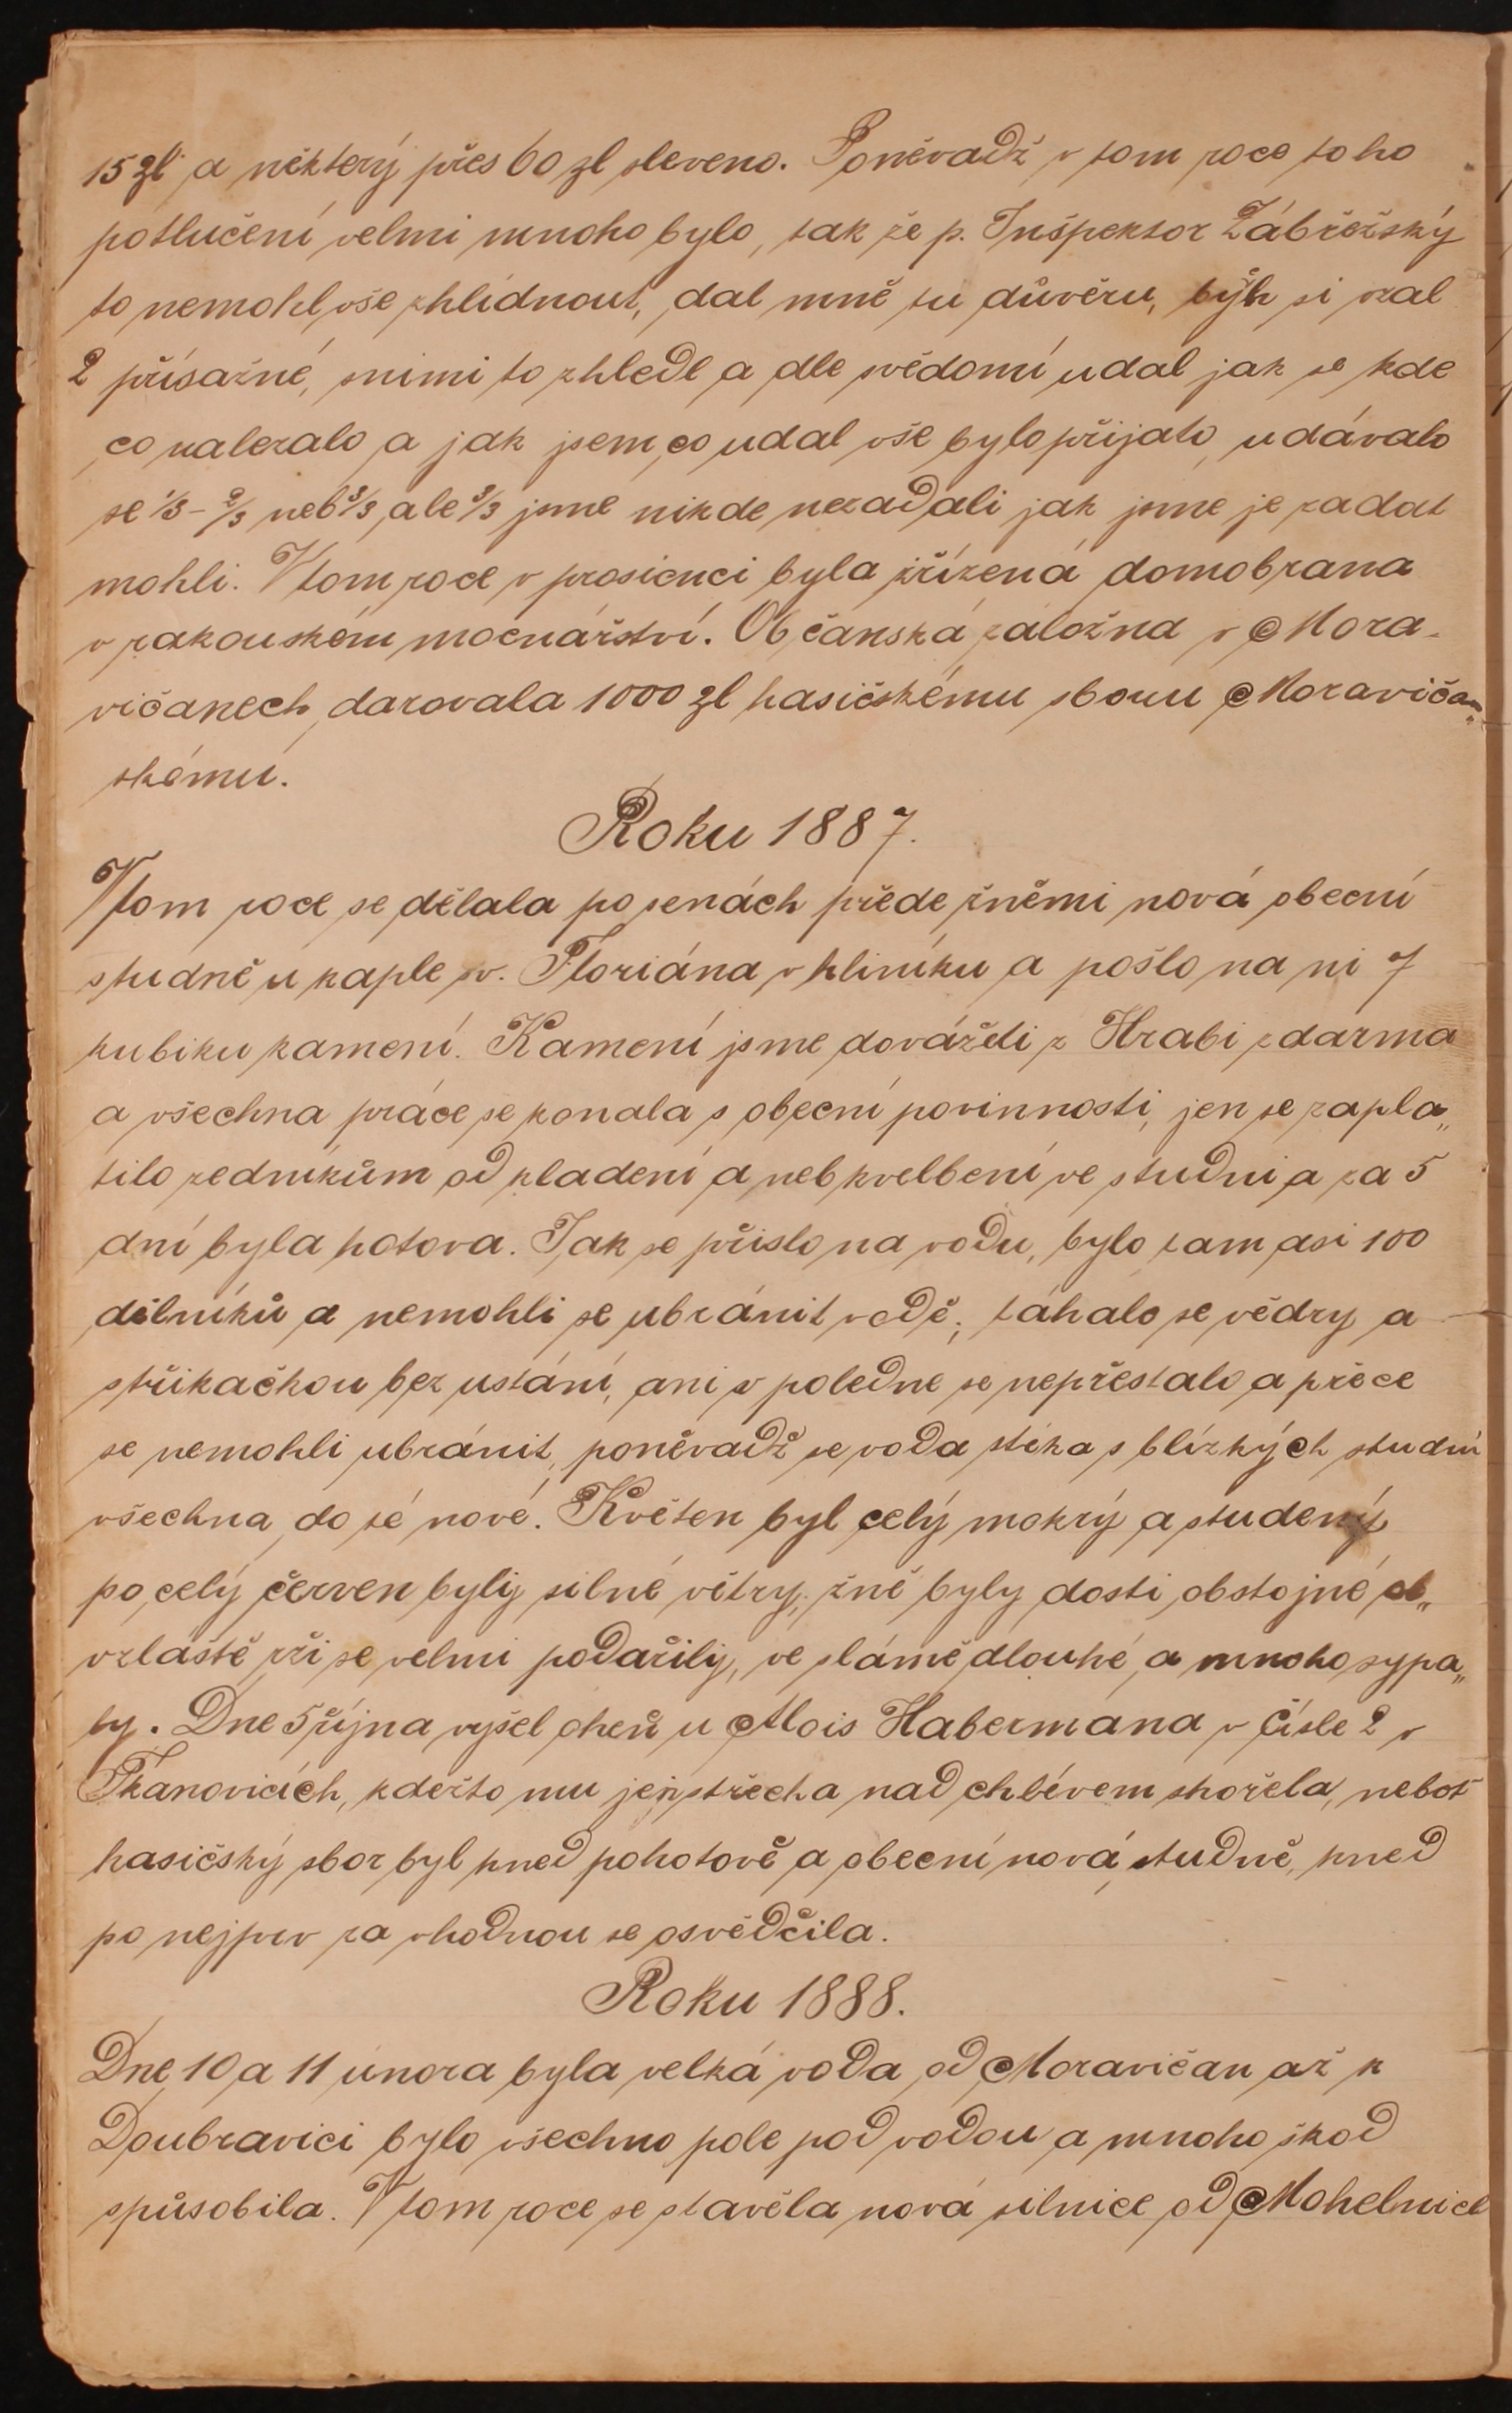 15 zl a některý přes 60 zl sleveno. Poněvadž v tom roce toho
potlučení velmi mnoho bylo, tak že p. Inšpektor Zábřežský
to nemohl vše zhlídnout, dal mně tu důvěru, bých si vzal
2 přísažné, snimi to zhledl a dle svědomí udal jak se kde
co nalezalo a jak jsem co udal vše bylo přijato, udávalo
se 1/3 - 2/3 neb 3/3, ale 3/3 jsme nikde nezadali jak jsme je zadat
mohli. V tom roce v prosienci byla zřízená domobrana
v rakouském mocnářství. Občanská záložna v Mora-
vičanech darovala 1000 zl hasičskému sboru Moravičan„
skému.
Roku 1887.
V tom roce se dělala po senách přede žněmi nová obecní
studně u kaple sv. Floriána v hliníku a pošlo na ni 7
kubiku kamení. Kamení jsme dováželi z Hrabi zdarma
a všechna práce se konala s obecní povinnosti, jen se zapla„
tilo zedníkům od kladení a neb kvelbení ve studni a za 5
dní byla hotova. Jak se přislo na vodu, bylo tam asi 100
dělníků a nemohli se ubránit vodě, táhalo se vědry a
střikačkou bez ustání, ani v poledne se nepřestalo a přece
se nemohli ubránit, poněvadž se voda stéka s blízkých studní
všechna do té nové. Květen byl celý mokrý a studený
po celý červen byly silné větry, žně byly dosti obstojné ob„
vzlaště rži se velmi podařily, ve slámě dlouhé a mnoho sypa„
ly. Dne 5 října vyšel oheň u Alois Habermana v čísle 2 v
Tkanovicích, kdežto mu jen střecha nad chlévem shořela, neboť
hasičský sbor byl hned pohotově a obecní nová studně, hned
po nejprv za vhodnou se osvědčila.
Roku 1888.
Dne 10 a 11 února byla velká voda, od Moravičan až k
Doubravici bylo všechno pole pod vodou a mnoho škod
spůsobila. V tom roce se stavěla nová silnice od Mohelnice